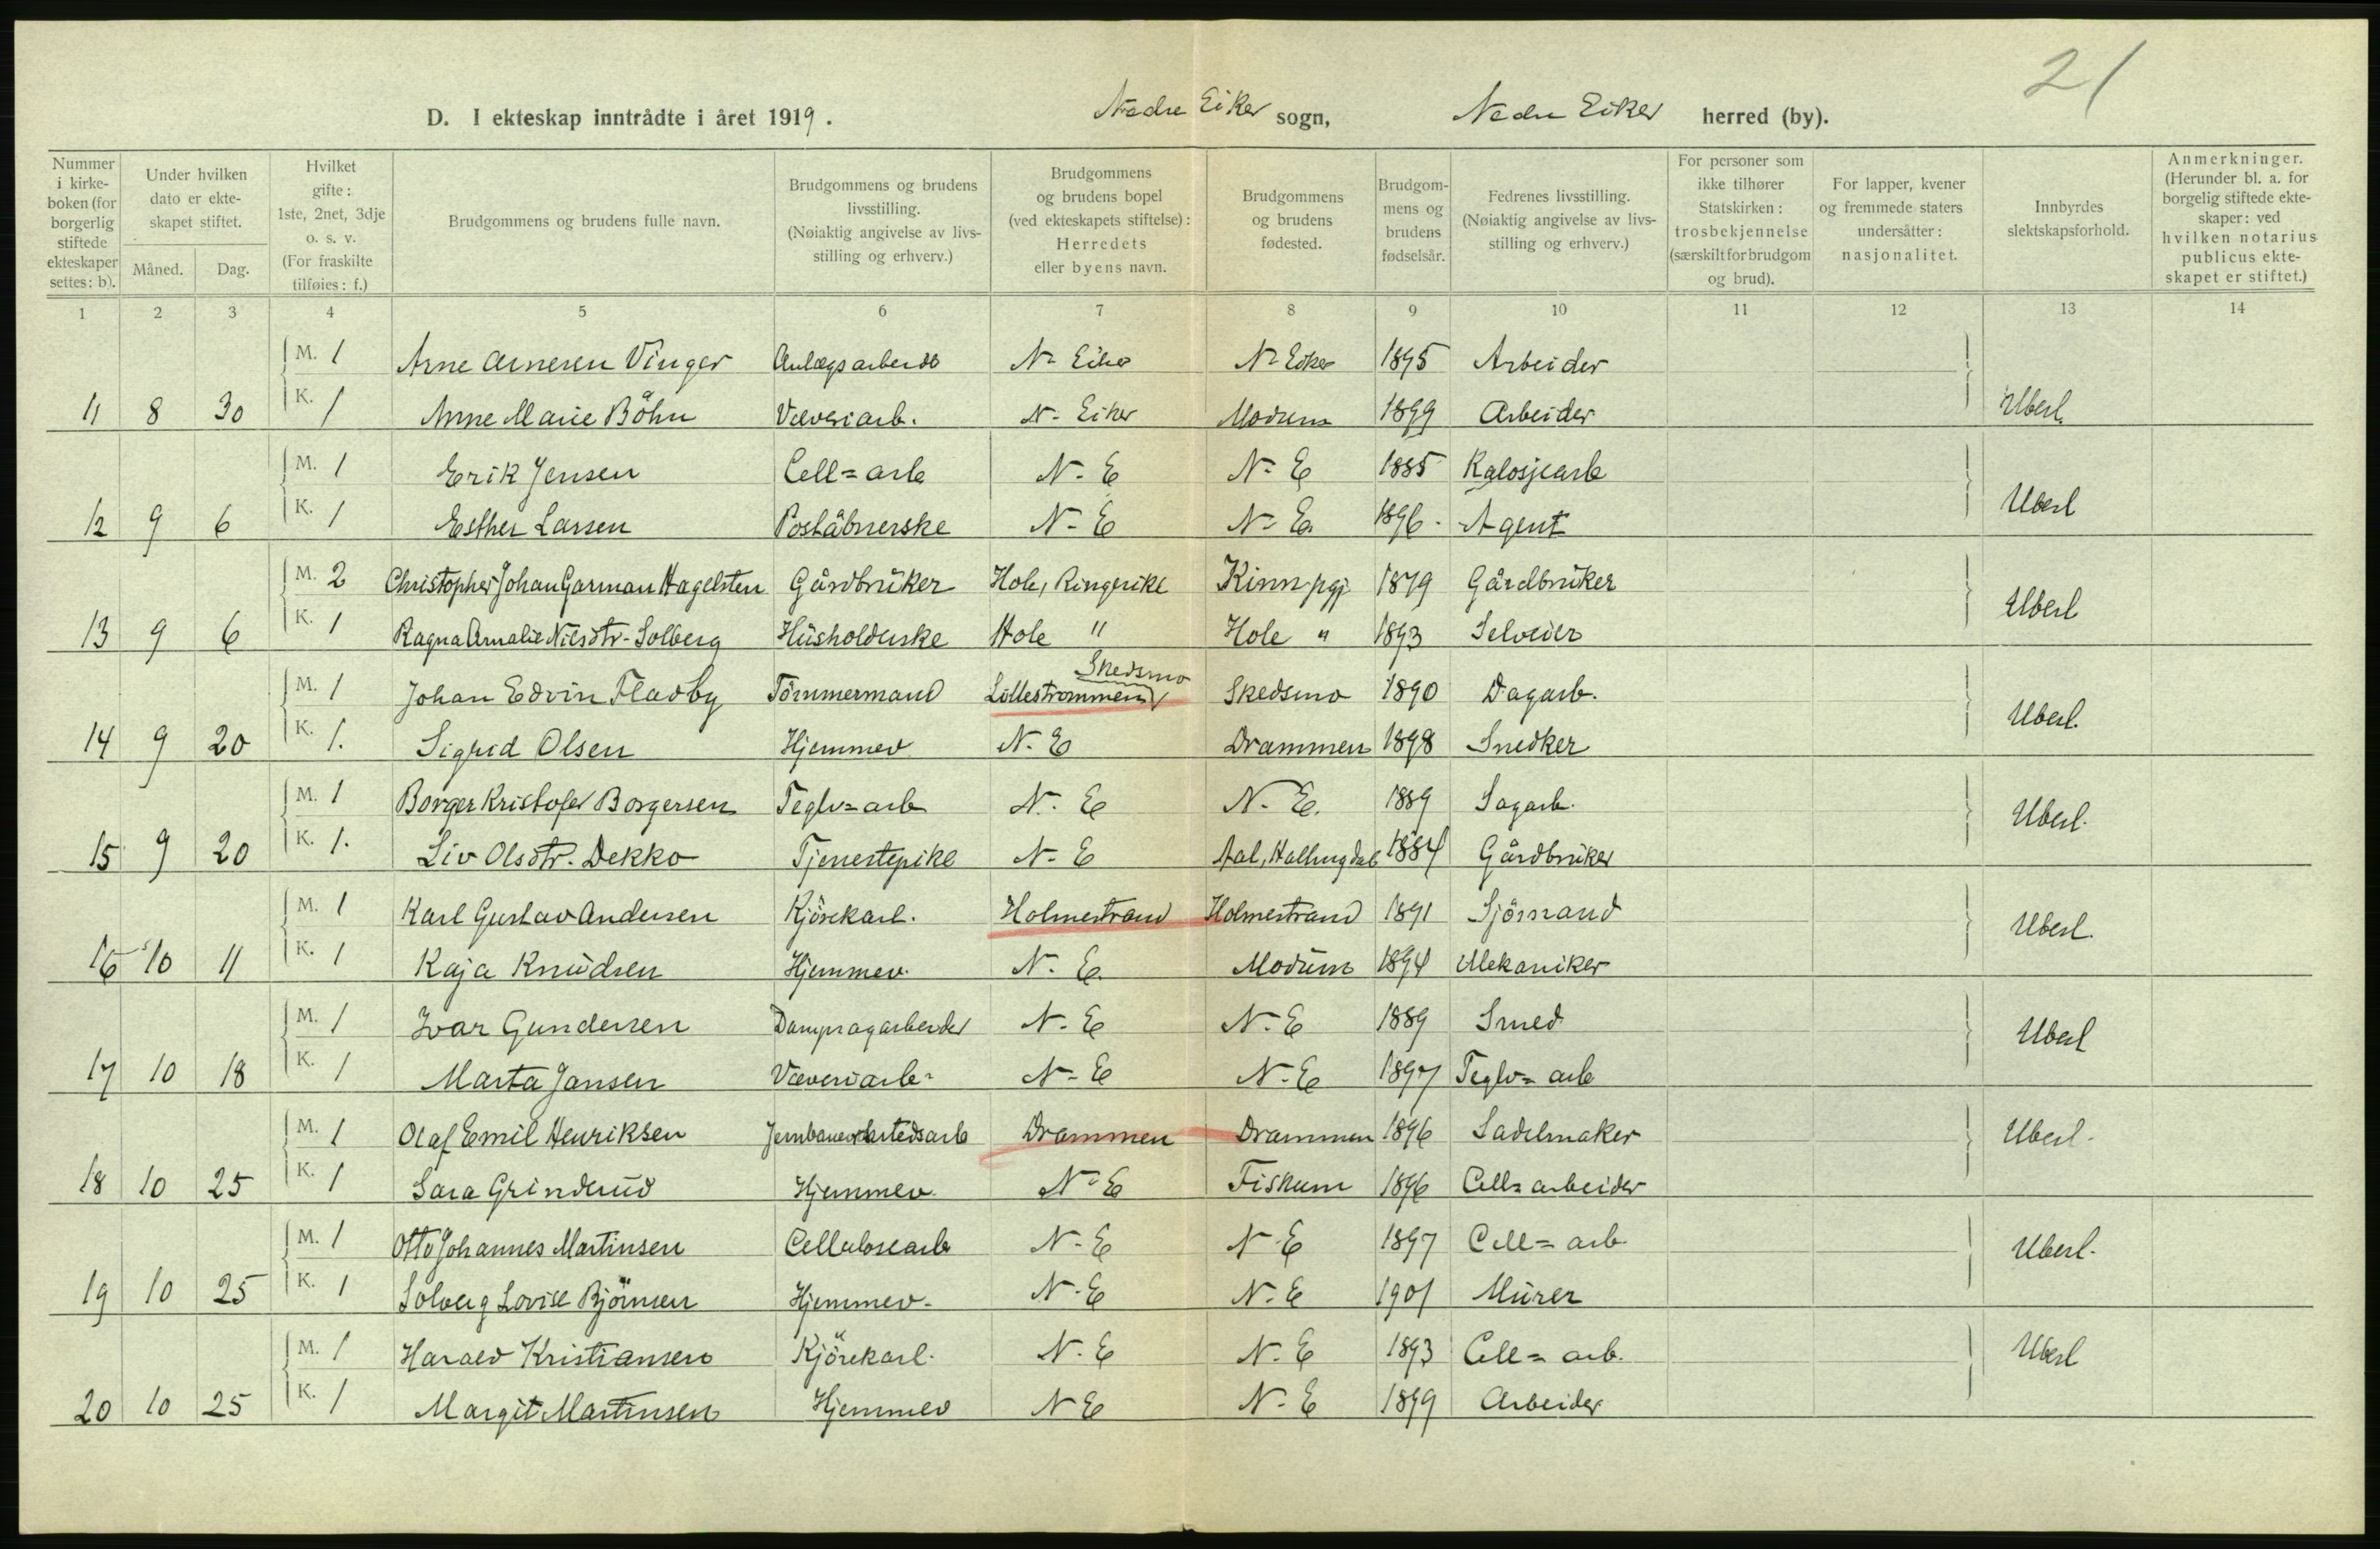 21
D. I ekteskap inntrådte i året 1919. Nedre Eiker sogn, Nedre Eiker herred (by).
Nummer i kirke-boken (for borgerlig stiftede ekteskaper settes: b).
Under hvilken dato er ekte-skapet stiftet.
Måned. Dag.
Hvilket gifte: 1ste, 2net, 3dje o. s. v. (For fraskilte tilføies: f.)
Brudgommens og brudens fulle navn.
Brudgommens og brudens livsstilling. (Nøiaktig angivelse av livs-stilling og erhverv.)
Brudgommens og brudens bopel (ved ekteskapets stiftelse): Herredets eller byens navn.
Brudgommens og brudens fødested.
Brudgom-mens og brudens fødselsår.
Fedrenes livsstilling. (Nøiaktig angivelse av livs-stilling og erhverv.)
For personer som ikke tilhører Statskirken: trosbekjennelse (særskilt for brudgom og brud).
For lapper, kvener og fremmede staters undersåtter: nasjonalitet.
Innbyrdes slektskapsforhold.
Anmerkninger. (Herunder bl. a. for borgelig stiftede ekte-skaper: ved hvilken notarius publicus ekte-skapet er stiftet.)
1 2 3 4 5 6 7 8 9 10 11 12 13 14
M. 1 Arne Arnesen Vinger Anlægsarbeider N. Eiker N. Eiker 1895 Arbeider
11 8 30 K. 1 Anne Marie Böhn Væveriarb. N. Eiker Modum 1899 Arbeider Ubesl.
M. 1 Erik Jensen Cell=arb N. E N. E 1885 Kalosjearb
12 9 6 K. 1 Esther Larsen Poståbnerske N. E N. E. 1896. Agent Ubesl
M. 2 Christopher Johan Garman Hagelsten Gårdbruker Hole, Ringerike Kinn pgj. 1879 Gårdbruker
13 9 6 K. 1 Ragna Amalie Nilsdtr. Solberg Husholderske Hole " Hole " 1893 Selveier Ubesl
Skedsmo
M. 1 Johan Edvin Fladby Tömmermand Lillestrommen Skedsmo 1890 Dagarb.
14 9 20 K. 1. Sigrid Olsen Hjemmev N. E Drammen 1898 Snedker Ubesl.
M. 1 Borger Kristofer Borgersen Teglv=arb N. E N. E. 1889 Sagarb.
15 9 20 K. 1. Liv Olsdtr. Dekko Tjenestepike N. E Aal, Hallingdal 1884 Gårdbruker Ubesl.
M. 1 Karl Gustav Andersen Kjörekarl. Holmestrand Holmestrand 1891 Sjömand
16 10 11 K. 1 Kaja Knudsen Hjemmev. N. E. Modum 1894 Mekaniker Ubesl.
M. 1 Ivar Gundersen Dampsagarbeider N. E N. E 1889 Smed
17 10 18 K. 1 Marta Jansen Væveriarb. N. E N. E 1897 Teglv= arb Ubesl
M. 1 Olaf Emil Henriksen Jernbaneverkstedsarb Drammen Drammen 1896 Sadelmaker
18 10 25 K. 1 Sara Grinderud Hjemmev. N. E Fiskum 1896 Cell= arbeider Ubesl.
M. 1 Otto Johannes Martinsen Cellulosearb N. E N. E 1897 Cell= arb
19 10 25 K. 1 Solveig Lovise Björnsen Hjemmev. N. E N. E 1901 Murer Ubesl.
M. 1 Harald Kristiansen Kjörekarl. N. E N. E 1893 Cell= arb.
20 10 25 K. 1 Margit Martinsen Hjemmev N E N. E 1899 Arbeider Ubesl